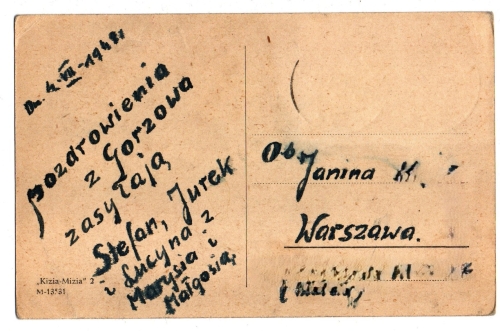 Dn. 4. VII. 1948r.
pozdrowienia
z Gorzowa
zasyłają
Stefan, Jurek
i Lucyna z
Marysią i
Małgosią.
„Kizia-Mizia" 2
M-13581
Ob.
Janina K.
Warszawa.